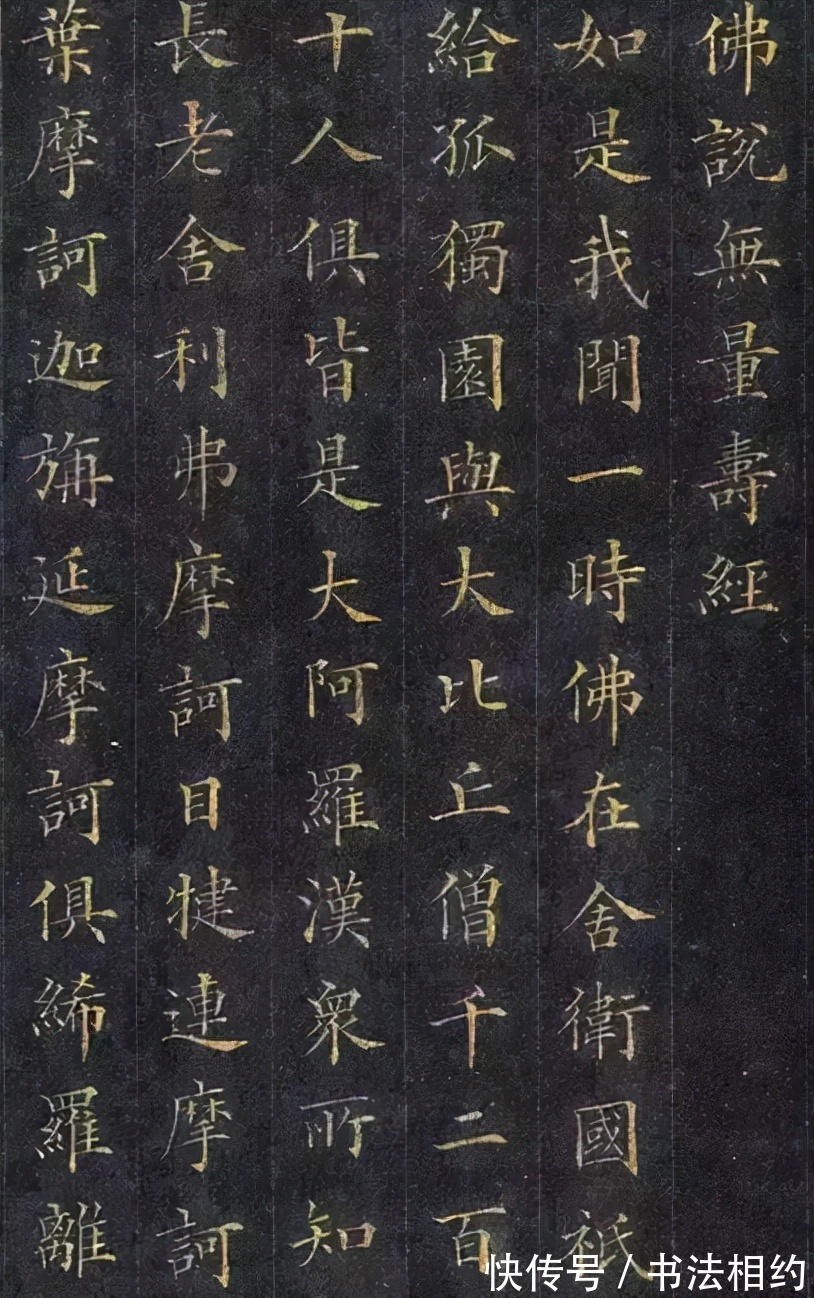 佛說無量壽經
如是我聞一時佛在舍衛國祇
給孤獨園與大比丘僧千二百
十人俱皆是大阿羅漢衆所知
長老舍利弗摩訶目犍連摩訶
葉摩訶迦旃延摩訶俱絺羅離
快传号 / 书法相约